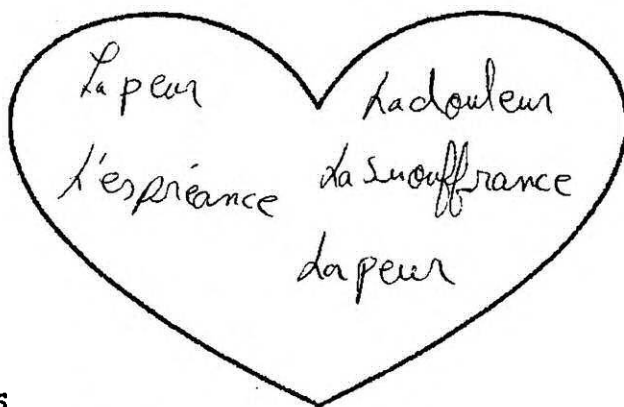 La peur
La douleur
L'espréance
La suouffrance
La peur
s